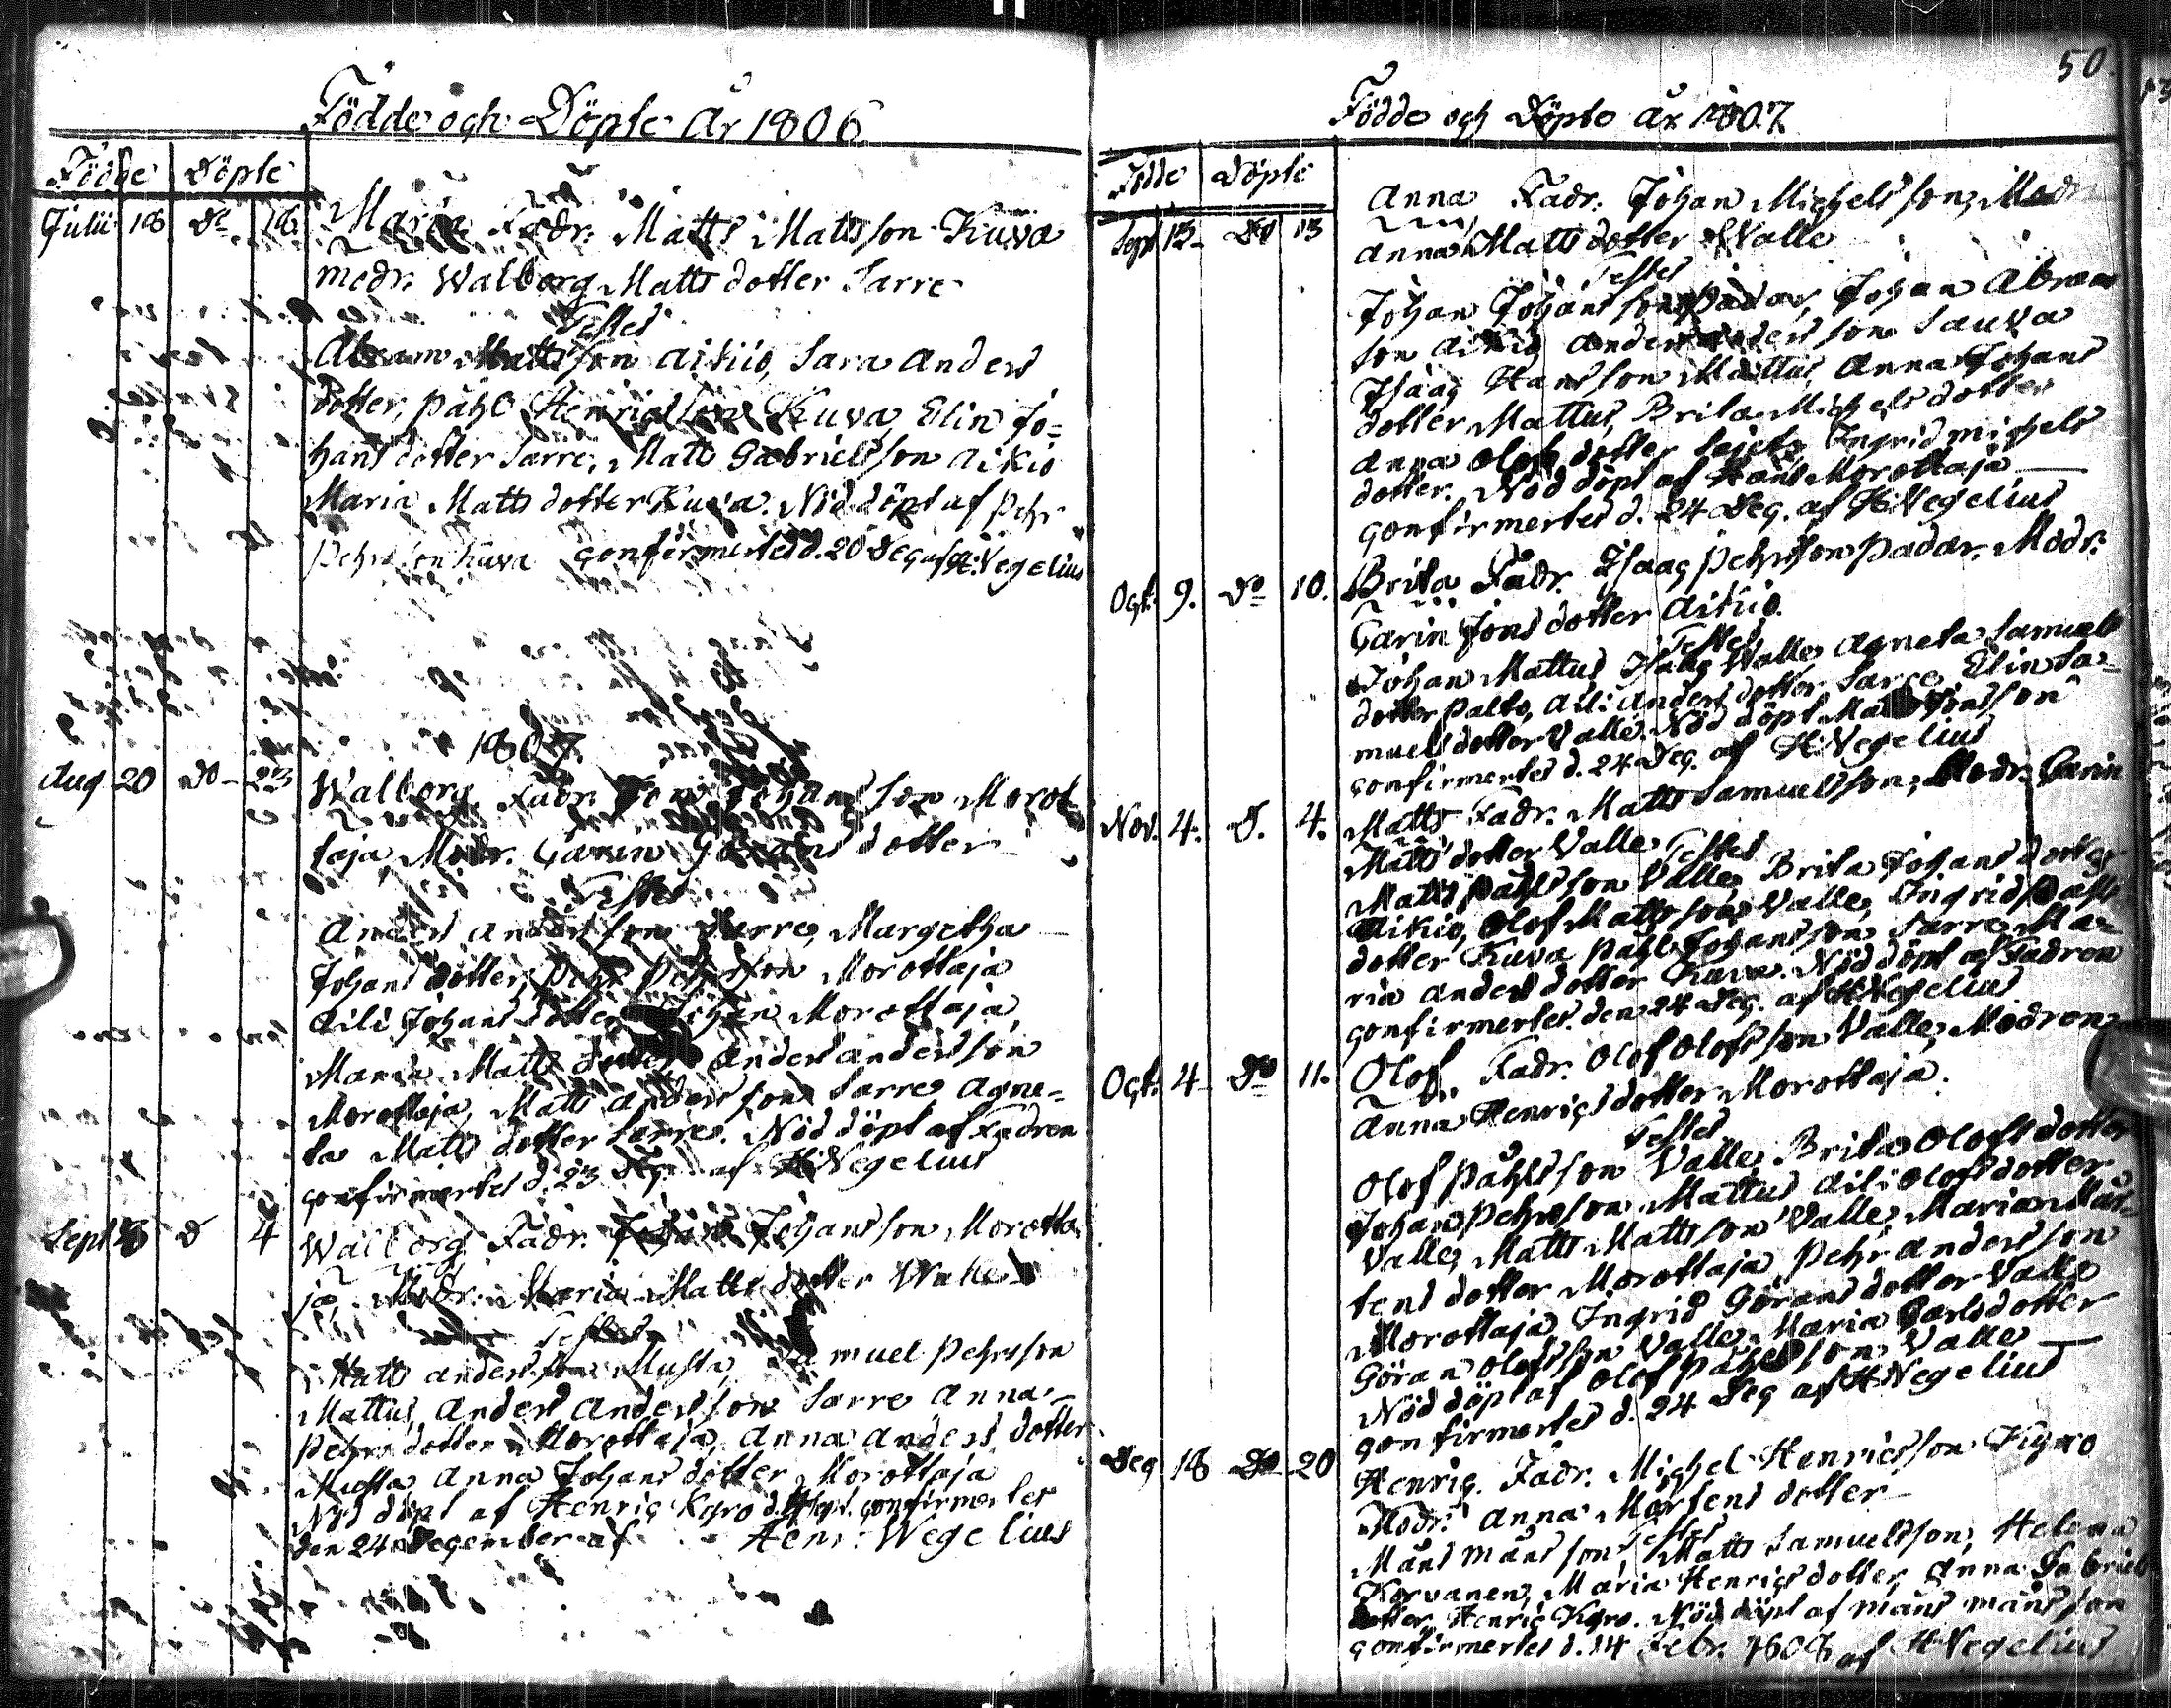 Födde och Döpte År 1806
Födde Döpte
Julii 18 Do 18. Maria Fadr. Matts Matsson Kuva
modr. Walborg Matts dotter Sarre
Testes
Abram Mattsson Aikio, Sara Anders
dotter, Påhl Henricsson Kuva, Elin Jo=
hans dotter Sarre, Matts Gabrielsson Aikio
Maria Matts dotter Kuva. Nöd döpt af Pehr
Pehrsson Kuva confirmertes d. 20 Dec af H. Wegelius
1807.
Aug 20 Do 23 Walborg Fadr. Johansson Morot
taja, Modr. Carin dotter
Testes
Anders Andersson Sarre, Margetha
Johans dotter, Pehr Pehrsson Morottaja
Aili Johans dotter Johan Morottaja,
Maria Matts dotter Anders Andersson
Morottaja, Matts Andersson Sarre, Agne=
ta Matts dotter Sarre. Nöd döpt af Fadren
confirmertes d. 23 af H Wegelius
Sept D 4 Walborg Fadr. Johansson Morotta
ja, Modr. Maria Matts dotter Walle
Testes
Matts Andersson Musta, Samuel Pehrsson
Mattus, Anders Andersson Sarre Anna
Pehrs dotter Morottaja, Anna Anders dotter
Musta Anna Johans dotter Morottaja
Nöd döpt af Henric Kyro d. 4 Sept. confirmertes
den 24 December af Henr: Wegelius
50
Födde och Döpte År 1807
Födde Döpte
Sept 13 Do 13 Anna Fadr. Johan Michelsson, Modr
Anna Matts dotter Walle
Testes
Johan Johansson Padar, Johan Abram
son Aikio Anders Andersson Sauva
Isaac Hansson Mattus, Anna Johans
dotter Mattus, Brita Michels dotter
Anna Olofs dotter Ingrid Michels
dotter. Nöd döpt af Hans Morottaja
confirmertes d. 24 Dec. af H Wegelius
Oct. 9. Do 10. Brita Fadr. Isaac Pehrsson Padar, Modr.
Carin Jons dotter Aikio.
Testes
Johan Mattus Isaac Walle Agneta Samuels
dotter Palto, Aili Anders dotter Sarre Elin Sa=
muels dotter Valle. Nöd döpt Jonsson
confirmertes d. 24 Dec. af H Wegelius
Nov. 4. D. 4. Matts Fadr. Matts Samuelsson, Modr. Carin
Matts dotter Valle Testes
Matts Påhlsson Valle, Brita Johans dotter
Aikio, Olof Mattsson Valle, Ingrid Påhls
dotter Kuva Påhl Johansson Sarre Ma=
ria Anders dotter Kuva. Nöd döpt af Fadren
confirmertes den 24 Dec. af H Wegelius
Oct. 4 Do 11. Olof, Fadr. Olof Olofsson Valle, Modren
Anna Henrics dotter Morottaja.
Testes
Olof Påhlsson Valle, Brita Olofs dotter
Johan Pehrsson Mattus Aili Olofs dotter
Valle, Matts Mattsson Valle, Maria Mår=
tens dotter Morottaja Pehr Andersson
Morottaja Ingrid Görans dotter Valle
Göran Olofsson Valle, Maria Carls dotter
Nöd döpt af Olof Påhlsson Valle
confirmertes d. 24 Dec af H Wegelius
Dec 18 Do 20 Henric. Fadr. Michel Henricsson Kyro
Modr. Anna Mortens dotter
Testes
Måns Månsson, Matts Samuelsson, Helena
Korvanen, Maria Henrics dotter, Anna Gabriels
dotter, Henric Kyro. Nöd döpt af Måns Månsson
confirmertes d. 14 Febr. 1808 af H Wegelius